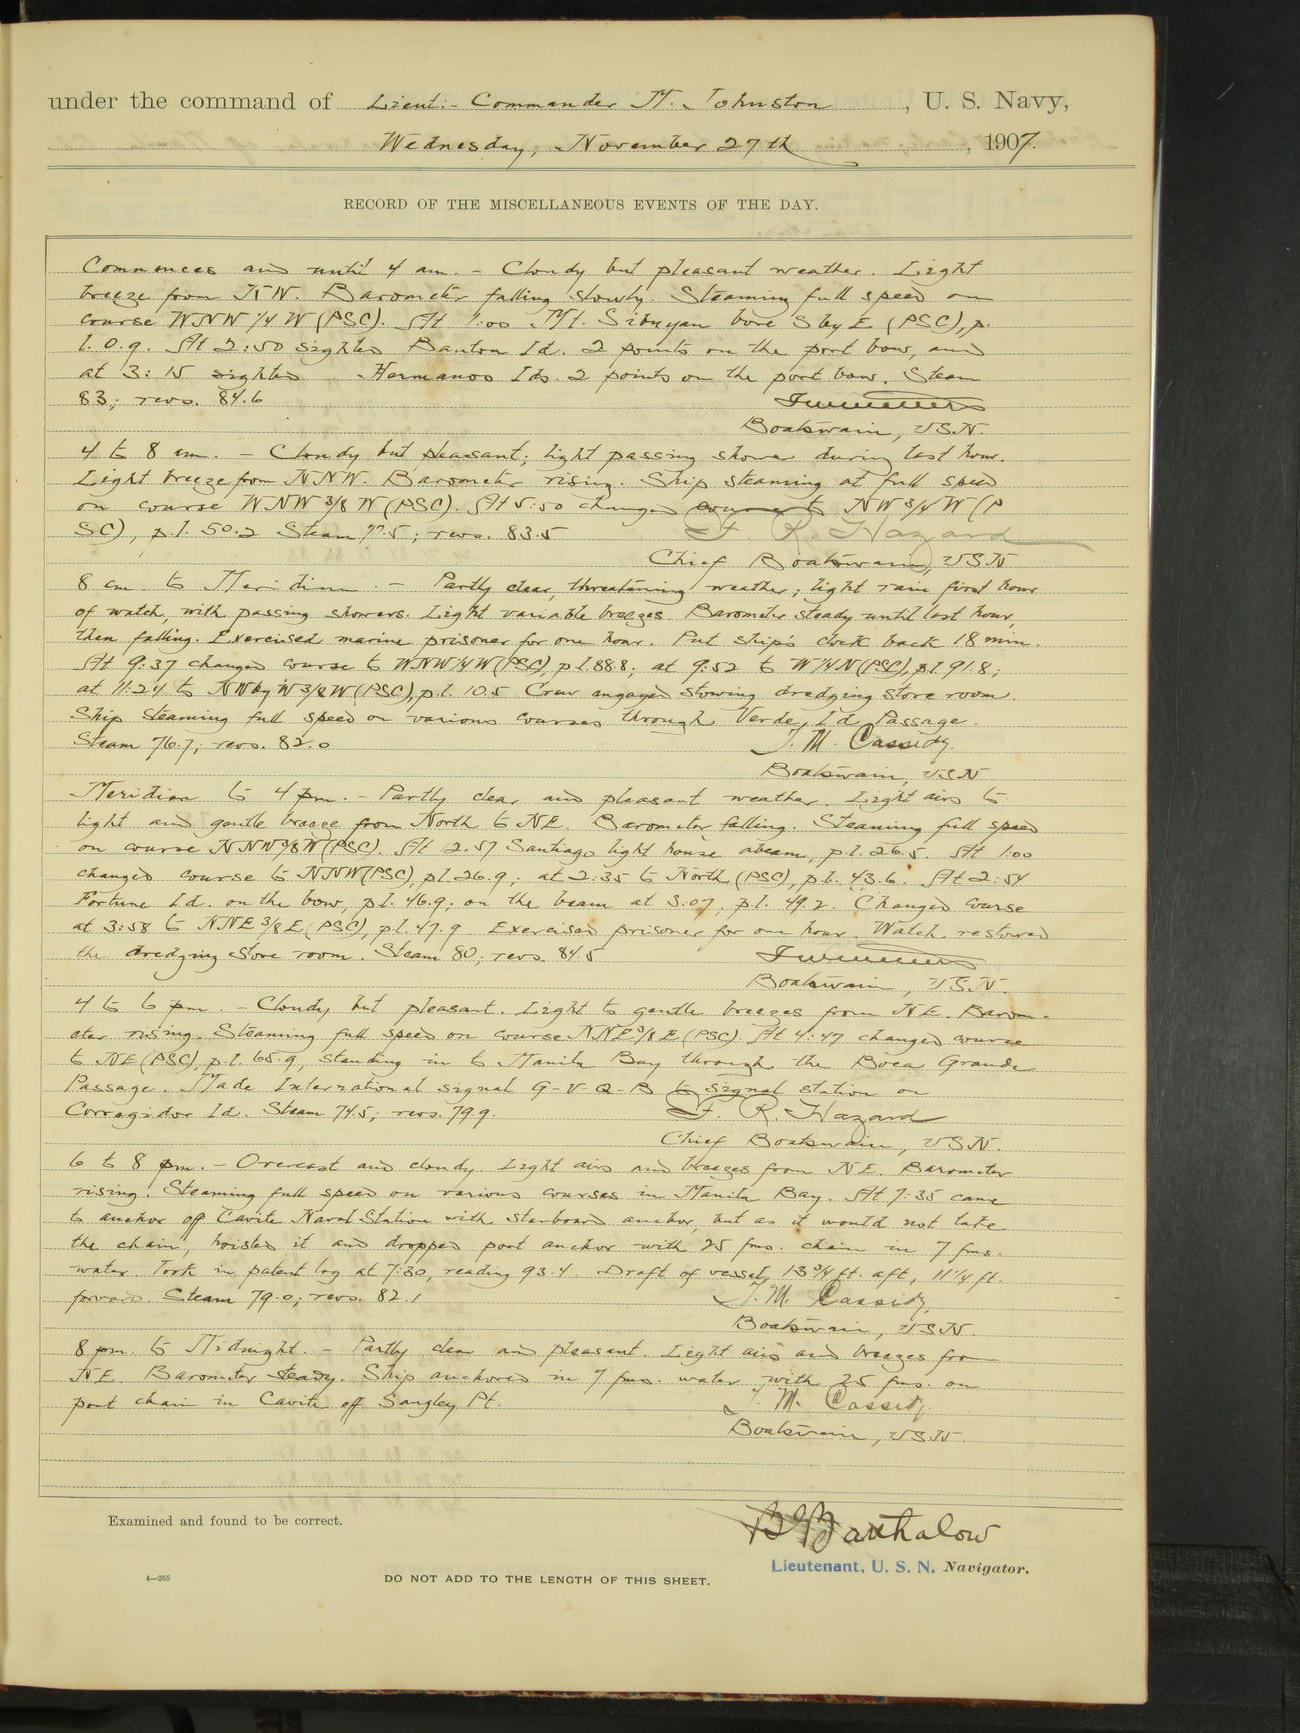 under the command of Lieut.- Commander M. Johnston, U. S. Navy,
Wednesday, November 27th, 1907.
RECORD OF THE MISCELLANEOUS EVENTS OF THE DAY.
Commences and until 4 am. - Cloudy but pleasant weather. Light
breeze from NW. Barometer falling slowly. Steaming full speed on
course WNW 1/4 W (PSC). At 1:00 Mt. Sibuyan bore S by E (PSC), p.
l. 0.9. At 2:50 sighted Banton Id. 2 points on the port bow, and
at 3:15 sighted Hermanos Ids. 2 points on the port bow. Steam
83; revs. 84.6
Boatswain, USN.
4 to 8 am. - Cloudy but pleasant; light passing shower during last hour.
Light breeze from NNW. Barometer rising. Ship steaming at full speed
on course WNW 3/8 W (PSC). At 5:50 changed course to NW 3/4 W (P
SC), p.l. 50.2 Steam 77.5; revs. 83.5 F. R. Hazard
Chief Boatswain, USN
8 am to Meridian. - Partly clear, threatening weather; light rain first hour
of watch, with passing showers. Light variable breezes. Barometer steady until last hour,
then falling. Exercised marine prisoner for one hour. Put ship's clock back 18 min.
At 9:37 changed course to WNW 1/4 W (PSC), p.l. 88.8; at 9:52 to W 1/4 N (PSC), p.l. 91.8;
at 11:24 to NW by W 3/8 W (PSC), p.l. 10.5 Crew engaged stowing dredging store room.
Ship steaming full speed on various courses through Verde Id. Passage.
Steam 76.7; revs. 82.0 T. M. Cassidy.
Boatswain, USN
Meridian to 4 pm. - Partly clear and pleasant weather. Light airs to
light and gentle breeze from North to NE. Barometer falling. Steaming full speed
on course NNW 3/8 W (PSC). At 12.57 Santiago light house abeam, p.l. 26.5. At 1:00
changed course to NNW (PSC), p.l. 26.9; at 2:35 to North (PSC), p.l. 43.6. At 2:54
Fortune Id. on the bow, p.l. 46.9; on the beam at 3:07, p.l. 49.2. Changed course
at 3:58 to NNE 3/8 E (PSC), p.l. 47.9 Exercised prisoner for one hour. Watch restowed
the dredging store room. Steam 80; revs. 84.5
Boatswain, USN.
4 to 6 pm. - Cloudy but pleasant. Light to gentle breezes from NE. Barom-
eter rising. Steaming full speed on course NNE 3/8 E (PSC). At 4:47 changed course
to NE (PSC), p.l. 65.9, standing in to Manila Bay through the Boca Grande
Passage. Made International signal G-V-Q-B to signal station on
Corregidor Id. Steam 74.5; revs. 79.9. F. R. Hazard
Chief Boatswain, USN.
6 to 8 pm. - Overcast and cloudy. Light airs and breezes from NE. Barometer
rising. Steaming full speed on various courses in Manila Bay. At 7:35 came
to anchor off Cavite Naval Station with starboard anchor, but as it would not take
the chain, hoisted it and dropped port anchor with 25 fms. chain in 7 fms.
water. Took in patent log at 7:30, reading 93.4. Draft of vessel, 13 3/4 ft. aft, 11 1/4 ft.
forward. Steam 79.0; revs. 82.1 T. M. Cassidy,
Boatswain, USN.
8 pm. to Midnight. - Partly clear and pleasant. Light airs and breezes from
NE. Barometer steady. Ship anchored in 7 fms. water with 25 fms. on
port chain in Cavite off Sangley Pt. T. M. Cassidy.
Boatswain, USN
Examined and found to be correct. Barthalow
Lieutenant, U. S. N. Navigator.
4—265 DO NOT ADD TO THE LENGTH OF THIS SHEET.